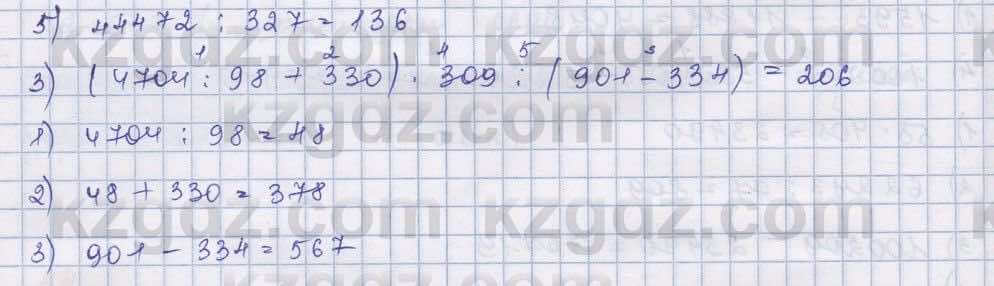 5) 44472 : 327 = 136
1 2 4 5 3
3) (4704 : 98 + 330) · 309 : (901 - 334) = 206
1) 4704 : 98 = 48
2) 48 + 330 = 378
3) 901 - 334 = 567
kzgdz.com
kzgdz.com
kzgdz.com
kzgdz.com
kzgdz.com